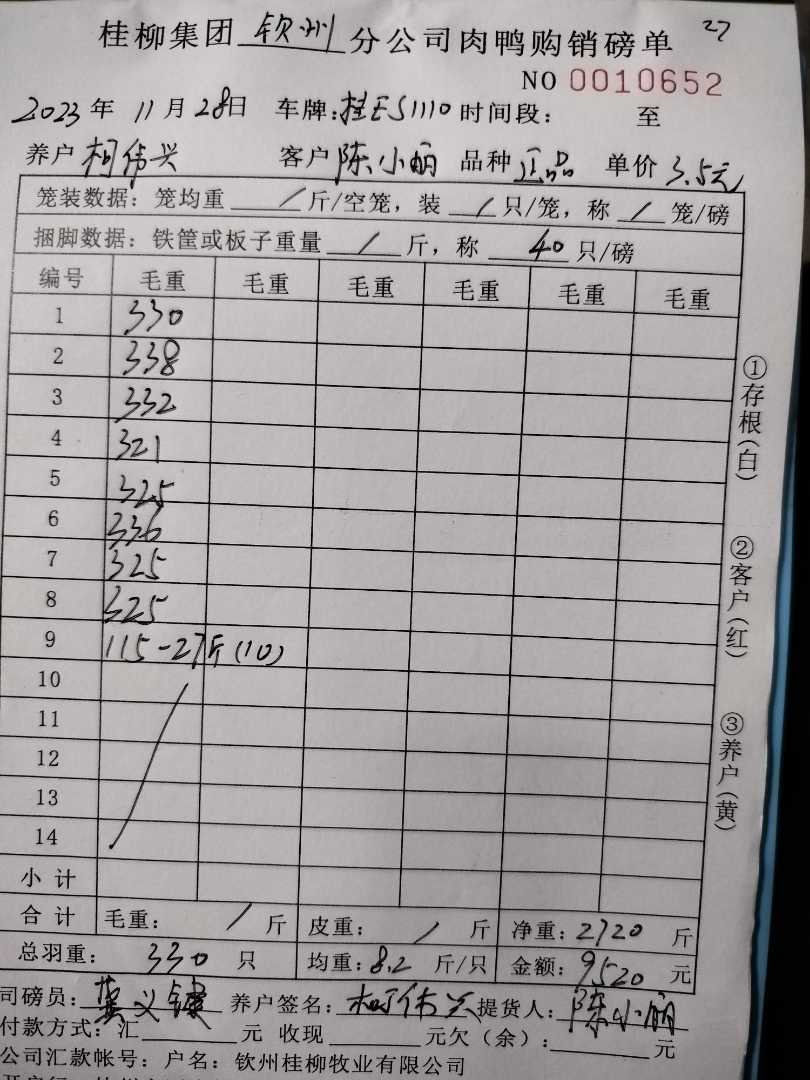 27
桂柳集团 钦州 分公司肉鸭购销磅单
NO 0010652
2023年 11月28日 车牌:桂ES1110 时间段: 至
养户 柯伟兴 客户 陈小丽 品种 正品 单价 3.5元
笼装数据:笼均重 / 斤/空笼,装 / 只/笼,称 / 笼/磅
捆脚数据:铁筐或板子重量 / 斤,称 40 只/磅
编号 毛重 毛重 毛重 毛重 毛重 毛重
1 330
2 338
3 332
4 321
5 325
6 336
7 325
8 325
9 115-27斤(10)
10
11
12
13
14
小计
合计 毛重: / 斤 皮重: / 斤 净重:2720 斤
总羽重: 330 只 均重:8.2 斤/只 金额:9520 元
司磅员: 义 养户签名:柯伟兴 提货人:陈小丽
付款方式:汇 元 收现 元欠(余): 元
公司汇款帐号:户名:钦州桂柳牧业有限公司
①存根(白)
②客户(红)
③养户(黄)